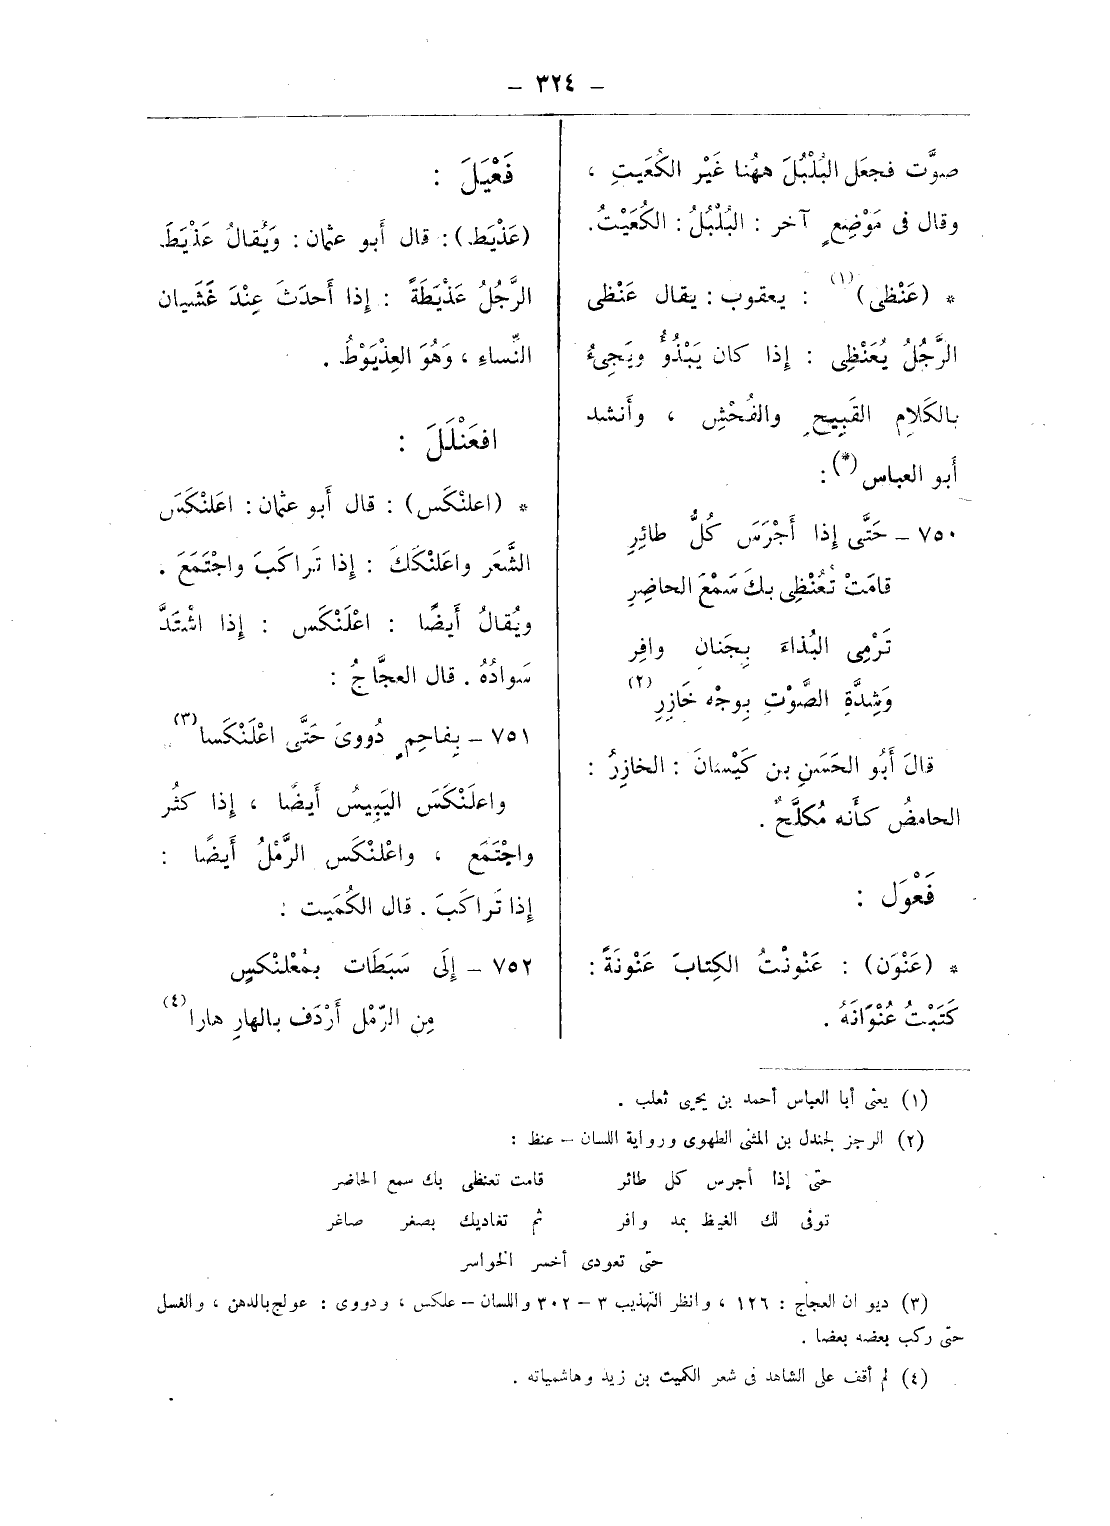 – ٣٢٤ –
صوَّت فجعَل البُلْبُلَ ههُنا غَيْر الكُعَيتِ ،
وقال فى مَوْضِعٍ آخر : البُلْبُلُ : الكُعَيْتُ.
* (عَنْظى) (١) : يعقوب : يقال عَنْظى
الرَّجُلُ يُعَنْظِى : إذا كان يَبْذُوُ ويَجِىءُ
بالكَلامِ القَبِيحِ والفُحْشِ ، وأَنشد
أبو العباس (*) :
٧٥٠ – حَتَّى إذا أَجْرَسَ كُلُّ طائِرِ
قامَتْ تُعَنْظِى بكَ سَمْعَ الحاضِرِ
تَرْمِى البُذاءَ بِجَنانٍ وافِرِ
وَشِدَّةِ الصَّوْتِ بِوجْهِ خَازِرِ (٢)
قالَ أَبُو الحَسَنِ بن كَيْسانَ : الخازِرُ :
الحامضُ كأَنه مُكلَّحٌ .
فَعْوَل :
* (عَنْوَن) : عَنْونْتُ الكِتابَ عَنْونَةً :
كَتَبْتُ عُنْوَانَهُ .
فَعْيَلَ :
(عَذْيَط) : قال أَبو عثمان : وَيُقالُ عَذْيَطَ
الرَّجُلُ عَذْيَطَةً : إذا أَحدَثَ عِنْدَ غَشَيان
النِّساءِ ، وَهُوَ العِذْيَوْطُ .
افعَنْلَلَ :
* (اعلنْكَس) : قال أَبو عثمان : اعَلنْكَسَ
الشَّعَر واعَلنْكَكَ : إذا تَراكَبَ واجْتَمَعَ .
ويُقالُ أَيضًا : اعْلَنْكَس : إذا اشْتَدَّ
سَوادُهُ . قال العجَّاجُ :
٧٥١ – بِفاحِمٍ دُووِىَ حَتَّى اعْلَنْكَسا (٣)
واعلَنْكَسَ اليَبِيسُ أَيضًا ، إذا كثُر
واجْتَمَع ، واعْلنْكَس الرَّمْلُ أَيضًا :
إذا تَراكَبَ . قال الكُمَيت :
٧٥٢ – إلَى سَبَطَات بمُعْلنْكسٍ
مِن الرّمْل أَرْدَف بالهارِ هارا (٤)
(١) يعنى أبا العباس أحمد بن يحيى ثعلب .
(٢) الرجز لجندل بن المثنى الطهوى ورواية اللسان – عنظ :
حتى إذا أجرس كل طائر قامت تعنظى بك سمع الحاضر
توفى لك الغيظ بمد وافر ثم تغاديك بصغر صاغر
حتى تعودى أخسر الخواسر
(٣) ديوان العجاج : ١٢٦ ، وانظر التهذيب ٣ – ٣٠٢ واللسان – علكس ، ودووى : عولج بالدهن ، والغسل
حتى ركب بعضه بعضا .
(٤) لم أقف على الشاهد فى شعر الكميت بن زيد وهاشمياته .